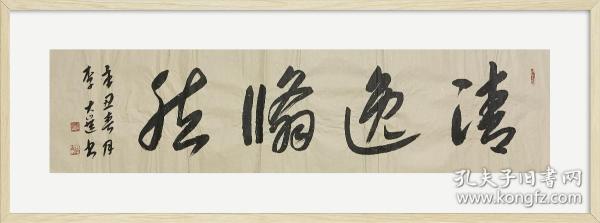 清逸翛然
辛丑春月
李大運书
孔夫子旧书网
www.kongfz.com